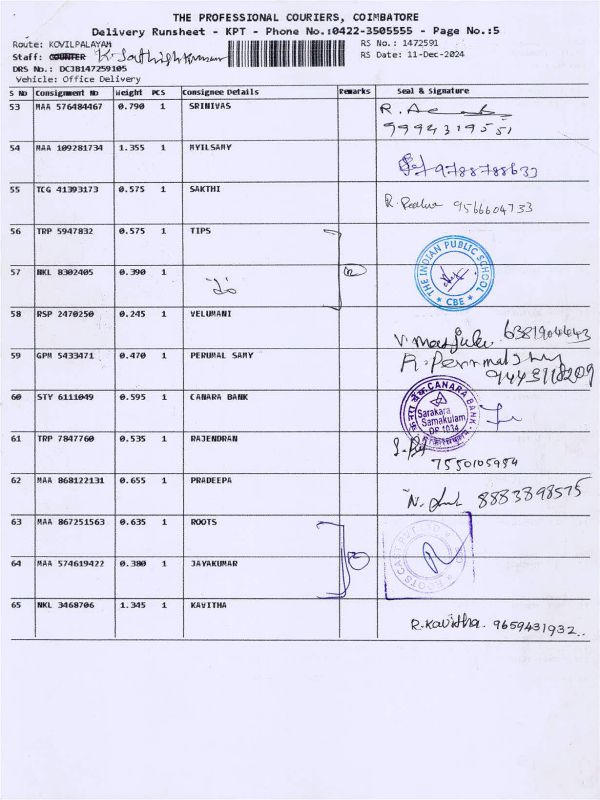 THE PROFESSIONAL COURIERS, COIMBATORE
Delivery Runsheet - KPT - Phone No.:0422-3505555 - Page No.:5
Route: KOVILPALAYAM
RS No.: 1472591
Staff: COUNTER
RS Date: 11-Dec-2024
DRS No.: DCJB147259105
Vehicle: Office Delivery
S No Consignment No Weight PCS Consignee Details Remarks Seal & signature
53 MAA 576484467 0.790 1 SRINIVAS
9994319551
54 MAA 109281734 1.355 1 MYILSAMY
9788788633
55 TCG 41393173 0.575 1 SAKTHI
9566604733
56 TRP 5947832 0.575 1 TIPS
THE INDIAN PUBLIC SCHOOL
★ CBE ★
57 NKL 8302405 0.390 1
58 RSP 2470250 0.245 1 VELUMANI
6381904643
59 GPM 5433471 0.470 1 PERUMAL SAMY
9443118209
60 STY 6111049 0.595 1 CANARA BANK
CANARA BANK
Sarakara
Samakulam
DP 1034
61 TRP 7847760 0.535 1 RAJENDRAN
7550105954
62 MAA 868122131 0.655 1 PRADEEPA
8883898575
63 MAA 867251563 0.635 1 ROOTS
64 MAA 574619422 0.380 1 JAYAKUMAR
65 NKL 3468706 1.345 1 KAVITHA
R. Kavitha. 9659431932..